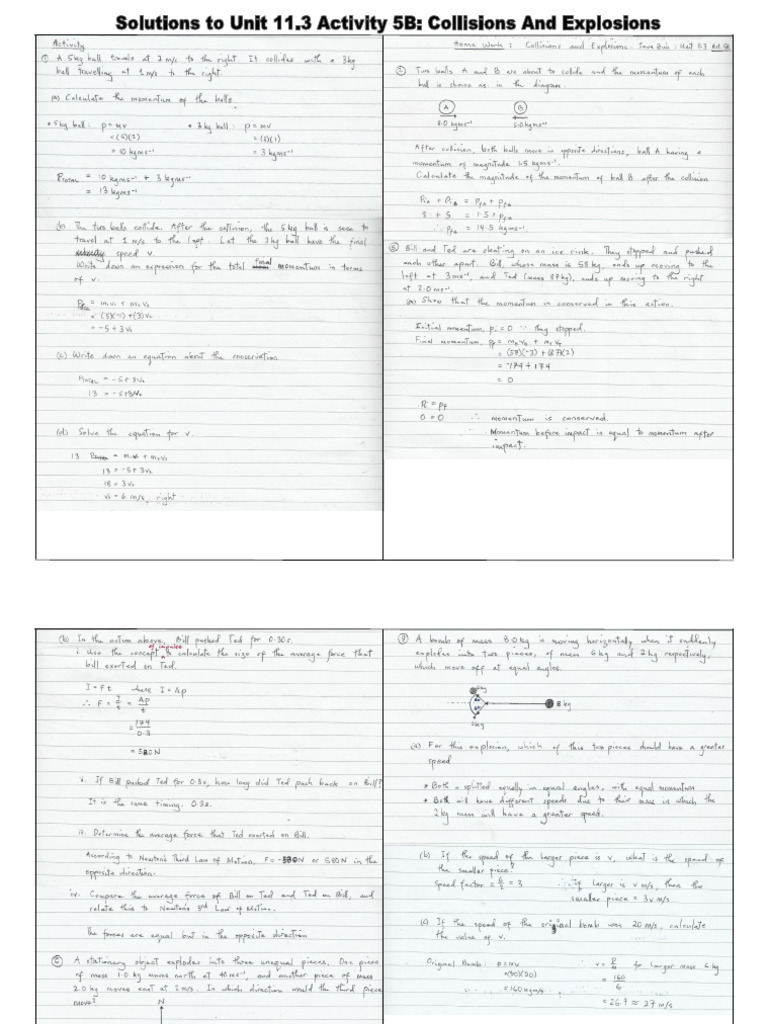 Solutions to Unit 11.3 Activity 5B: Collisions And Explosions
Activity
① A 5kg ball travels at 2 m/s to the right. It collides with a 3kg
ball travelling at 1 m/s to the right.
(a) Calculate the momentum of the balls.
* 5kg ball: p = mv * 3kg ball: p = mv
= (5)(2) = (3)(1)
= 10 kgms⁻¹ = 3 kgms⁻¹
PTOTAL = 10 kgms⁻¹ + 3 kgms⁻¹
= 13 kgms⁻¹
(b) The two balls collide. After the collision, the 5kg ball is seen to
travel at 1 m/s to the left. Let the 3kg ball have the final
speed v.
Write down an expression for the total final momentum in terms
of v.
= m₁v₁ + m₂v₂
= (5)(-1) + (3)v₂
= -5 + 3v₂
(c) Write down an equation about the conservation
= -5 + 3v₂
13 = -5+3v₂
(d) Solve the equation for v.
13 = m₁v₁ + m₂v₂
13 = -5 + 3v₂
18 = 3v₂
v₂ = 6 m/s, right
Home Work: Collisions and Explosions. Unit 11.3 Act 5B
② Two balls A and B are about to collide and the momentum of each
ball is shown as in the diagram.
A B
8.0 kgms⁻¹ 5.0 kgms⁻¹
After collision, both balls move in opposite directions, ball A having a
momentum of magnitude 1.5 kgms⁻¹.
Calculate the magnitude of the momentum of ball B after the collision
8 + 5 = 1.5 +
∴ = 14.5 kgms⁻¹
⑤ Bill and Ted are skating on an ice rink. They stopped and pushed
each other apart. Bill, whose mass is 58 kg, ends up moving to the
left at 3 ms⁻¹, and Ted (mass 87kg), ends up moving to the right
at 2.0 ms⁻¹.
(a) Show that the momentum is conserved in this action.
Initial momentum, pi = 0 ∵ they stopped.
Final momentum, pf = +
= (58)(-3) + (87)(2)
= -174 + 174
= 0
Pi = Pf
0 = 0 ∴ momentum is conserved.
∴ Momentum before impact is equal to momentum after
impact.
(b) In the action above, Bill pushed Ted for 0.30s.
of impulse
i. Use the concept calculate the size of the average force that
bill exerted on Ted.
I = Ft where I = Δp
∴ F = I/t = Δp/t
= 174/0.3
= 580N
ii. If Bill pushed Ted for 0.3s, how long did Ted push back on Bill?
It is the same timing. 0.3s.
iii. Determine the average force that Ted exerted on Bill.
According to Newton's Third Law of Motion, F = -580N or 580N in the
opposite direction.
iv. Compare the average force of Bill on Ted and Ted on Bill, and
relate this to Newton's 3rd Law of Motion.
The forces are equal but in the opposite direction
⑥ A stationary object explodes into three unequal pieces. One piece
of mass 1.0 kg moves north at ms⁻¹, and another piece of mass
2.0 kg moves east at ms⁻¹. In which direction would the third piece
move?
N
A bomb of mass 8.0kg is moving horizontally when it suddenly
explodes into two pieces, of mass 6 kg and 2 kg respectively,
which move off at equal angles.
8 kg
(a) For this explosion, which of this two pieces should have a greater
speed
* Both = splitted equally in equal angles, with equal momentum
* Both will have different speeds due to their mass in which the
2kg mass will have a greater speed.
(b) If the speed of the larger piece is v, what is the speed of
the smaller piece.
Speed factor = 6/2 = 3 ∴ if larger is v m/s, then the
smaller piece = 3v m/s
(c) If the speed of the original bomb was 20 m/s, calculate
the value of v.
Original Bomb: p = mv ∴ v = P/m for larger mass 6 kg
= (20) = 160/6
= 160 kgm/s = 26.7 ≈ 27 m/s